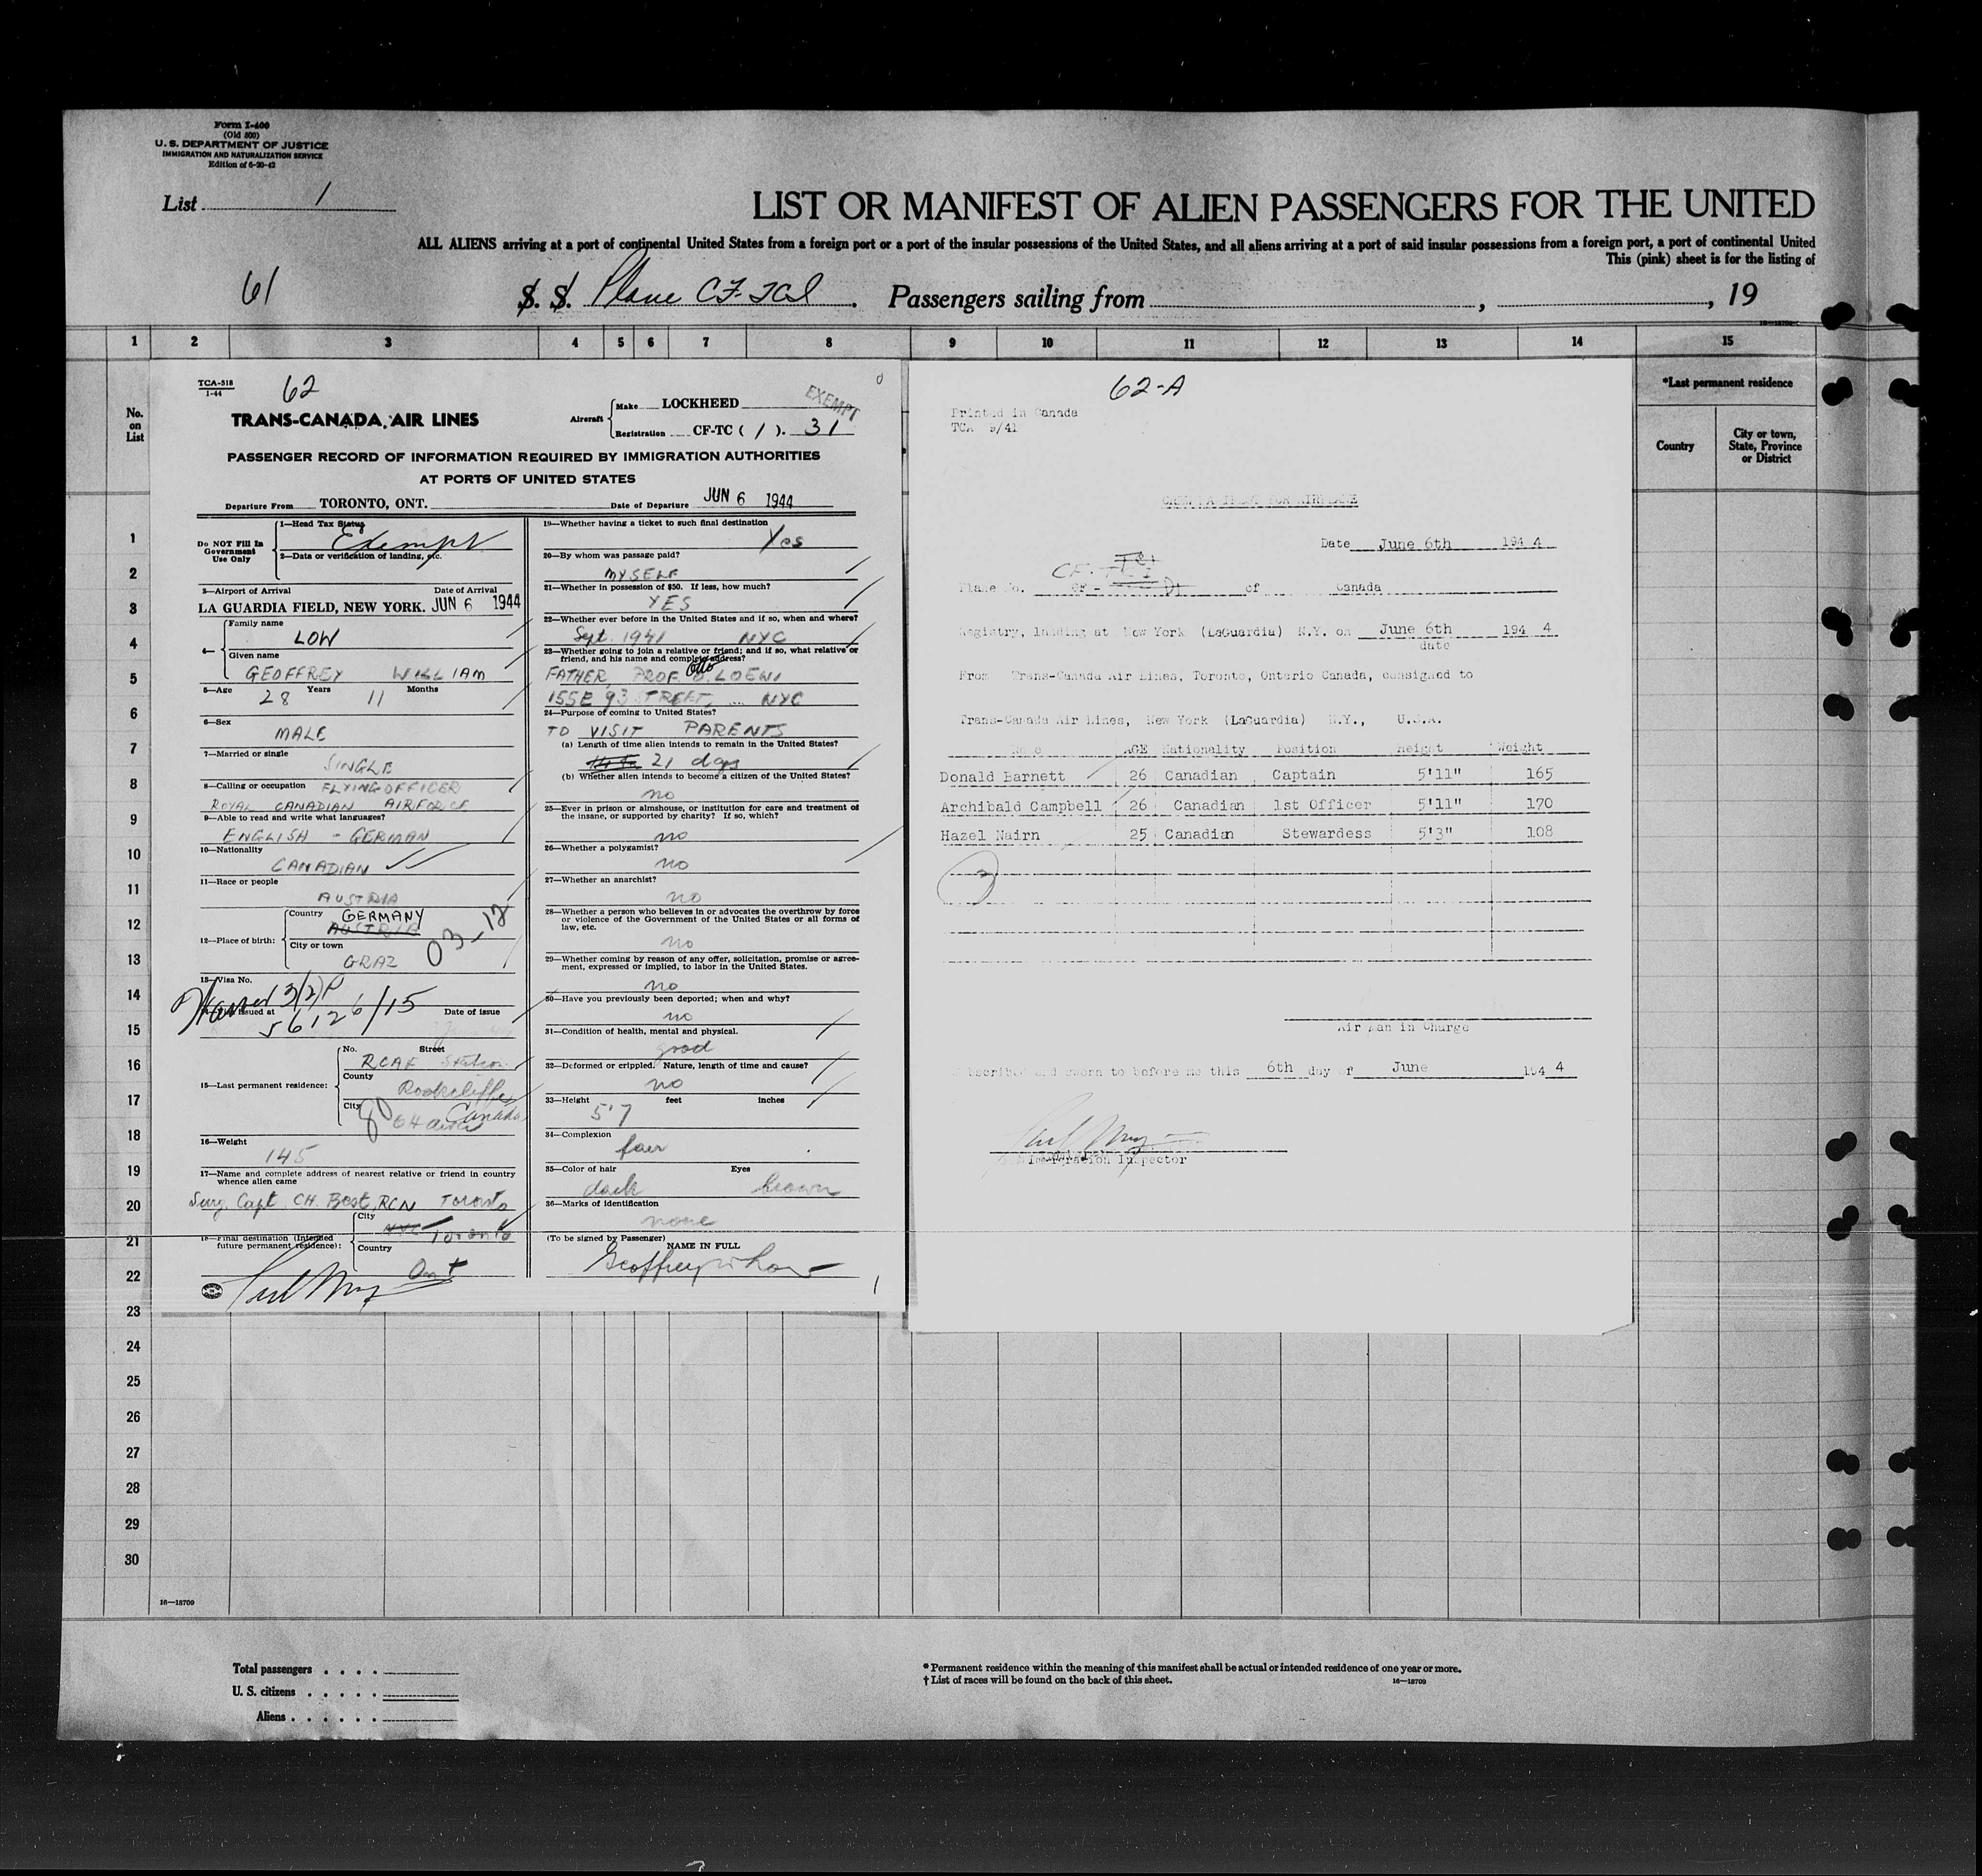 Form I-400
(Old 500)
U. S. DEPARTMENT OF JUSTICE
IMMIGRATION AND NATURALIZATION SERVICE
Edition of 6-20-42
List 1
LIST OR MANIFEST OF ALIEN PASSENGERS FOR THE UNITED
ALL ALIENS arriving at a port of continental United States from a foreign port or a port of the insular possessions of the United States, and all aliens arriving at a port of said insular possessions from a foreign port, a port of continental United
This (pink) sheet is for the listing of
61
S. S. Plane CF-TCI . Passengers sailing from , , 19
1 2 3 4 5 6 7 8 9 10 11 12 13 14 15
No. on List
*Last permanent residence
Country
City or town, State, Province or District
TCA-518
1-44
62
EXEMPT
TRANS-CANADA AIR LINES
Aircraft
Make LOCKHEED
Registration CF-TC ( 1 ). 31
PASSENGER RECORD OF INFORMATION REQUIRED BY IMMIGRATION AUTHORITIES
AT PORTS OF UNITED STATES
Departure From TORONTO, ONT. Date of Departure JUN 6 1944
Do NOT Fill In
Government
Use Only
1—Head Tax Status
Exempt
2—Data or verification of landing, etc.
3—Airport of Arrival Date of Arrival
LA GUARDIA FIELD, NEW YORK. JUN 6 1944
4—
Family name
LOW
Given name
GEOFFREY WILLIAM
5—Age Years Months
28 11
6—Sex
MALE
7—Married or single
SINGLE
8—Calling or occupation FLYING OFFICER
ROYAL CANADIAN AIRFORCE
9—Able to read and write what languages?
ENGLISH - GERMAN
10—Nationality
CANADIAN
11—Race or people
AUSTRIA
12—Place of birth:
Country GERMANY
AUSTRIA
City or town
GRAZ
03-18
13—Visa No.
Waived 3(2)P
Issued at Date of issue
56126/15
15—Last permanent residence:
No. Street
RCAF Station
County
Rockcliffe
City
80
Ottawa Canada
16—Weight
145
17—Name and complete address of nearest relative or friend in country
whence alien came
Surg. Capt. CH. Best, RCN Toronto
18—Final destination (Intended
future permanent residence):
City
NYC Toronto
Country
Ont
19—Whether having a ticket to such final destination
Yes
20—By whom was passage paid?
MYSELF
21—Whether in possession of $50. If less, how much?
YES
22—Whether ever before in the United States and if so, when and where?
Sept. 1941 NYC
23—Whether going to join a relative or friend; and if so, what relative or
friend, and his name and complete address?
FATHER, PROF. O. LOEWI
Otto
155 E 93 STREET, NYC
24—Purpose of coming to United States?
TO VISIT PARENTS
(a) Length of time alien intends to remain in the United States?
21 days
(b) Whether alien intends to become a citizen of the United States?
no
25—Ever in prison or almshouse, or institution for care and treatment of
the insane, or supported by charity? If so, which?
no
26—Whether a polygamist?
no
27—Whether an anarchist?
no
28—Whether a person who believes in or advocates the overthrow by force
or violence of the Government of the United States or all forms of
law, etc.
no
29—Whether coming by reason of any offer, solicitation, promise or agree-
ment, expressed or implied, to labor in the United States.
no
30—Have you previously been deported; when and why?
no
31—Condition of health, mental and physical.
good
32—Deformed or crippled. Nature, length of time and cause?
no
33—Height feet inches
5'7
34—Complexion
fair
35—Color of hair Eyes
dark brown
36—Marks of identification
none
(To be signed by Passenger)
NAME IN FULL
Geoffrey W Low
62-A
Printed in Canada
TCA 9/41
Date June 6th 1944
CF- TCI
Plane No. CF- of Canada
Registry, landing at New York (LaGuardia) N.Y. on June 6th 1944
date
From Trans-Canada Air Lines, Toronto, Ontario Canada, consigned to
Trans-Canada Air Lines, New York (LaGuardia) N.Y., U.S.A.
Name AGE Nationality Position Height Weight
Donald Barnett 26 Canadian Captain 5'11" 165
Archibald Campbell 26 Canadian 1st Officer 5'11" 170
Hazel Nairn 25 Canadian Stewardess 5'3" 108
3
Air Man in Charge
Subscribed and sworn to before me this 6th day of June 1944
Immigration Inspector
1
2
3
4
5
6
7
8
9
10
11
12
13
14
15
16
17
18
19
20
21
22
23
24
25
26
27
28
29
30
16—18709
Total passengers . . . .
U. S. citizens . . . . .
Aliens . . . . . .
* Permanent residence within the meaning of this manifest shall be actual or intended residence of one year or more.
† List of races will be found on the back of this sheet. 16—18709